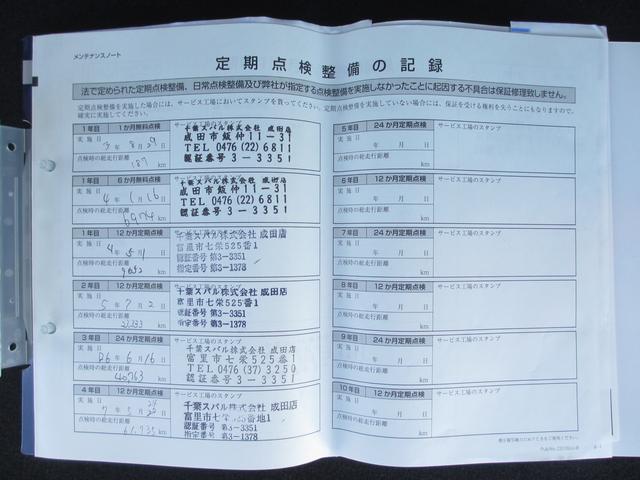 メンテナンスノート
定期点検整備の記録
法で定められた定期点検整備、日常点検整備及び弊社が指定する点検整備を実施しなかったことに起因する不具合は保証修理致しません。
定期点検整備を実施した場合には、サービス工場においてスタンプを貰ってください。定期点検整備を実施していない場合には、保証を受ける権利を失うことにもなりますので、
確実に実施してください。
1年目 1か月無料点検
サービス工場のスタンプ
実施日 3年 8月 29日
点検時の総走行距離
187 km
千葉スバル株式会社 成田店
成田市飯仲11-31
TEL 0476(22)6811
認証番号3-3351
1年目 6か月無料点検
サービス工場のスタンプ
実施日 4年 1月 16日
点検時の総走行距離
6974 km
千葉スバル株式会社 成田店
成田市飯仲11-31
TEL 0476(22)6811
認証番号3-3351
1年目 12か月定期点検
サービス工場のスタンプ
実施日 4年 5月
点検時の総走行距離
km
千葉スバル株式会社 成田店
富里市七栄525番1
認証番号 第3-3351
指定番号 第3-1378
2年目 12か月定期点検
サービス工場のスタンプ
実施日 5年 7月 2日
点検時の総走行距離
23,233 km
千葉スバル株式会社 成田店
富里市七栄525番1
認証番号 第3-3351
指定番号 第3-1378
3年目 24か月定期点検
サービス工場のスタンプ
実施日 R6年 6月 16日
点検時の総走行距離
40763 km
千葉スバル株式会社 成田店
富里市七栄525-1
TEL 0476(37)3250
認証番号3-3351
4年目 12か月定期点検
サービス工場のスタンプ
実施日 7年 5月
点検時の総走行距離
61,735 km
千葉スバル株式会社 成田店
富里市七栄525番地1
認証番号 第3-3351
指定番号 第3-1378
5年目 24か月定期点検
サービス工場のスタンプ
実施日 年 月 日
点検時の総走行距離
km
6年目 12か月定期点検
サービス工場のスタンプ
実施日 年 月 日
点検時の総走行距離
km
7年目 24か月定期点検
サービス工場のスタンプ
実施日 年 月 日
点検時の総走行距離
km
8年目 12か月定期点検
サービス工場のスタンプ
実施日 年 月 日
点検時の総走行距離
km
9年目 24か月定期点検
サービス工場のスタンプ
実施日 年 月 日
点検時の総走行距離
km
10年目 12か月定期点検
サービス工場のスタンプ
実施日 年 月 日
点検時の総走行距離
km